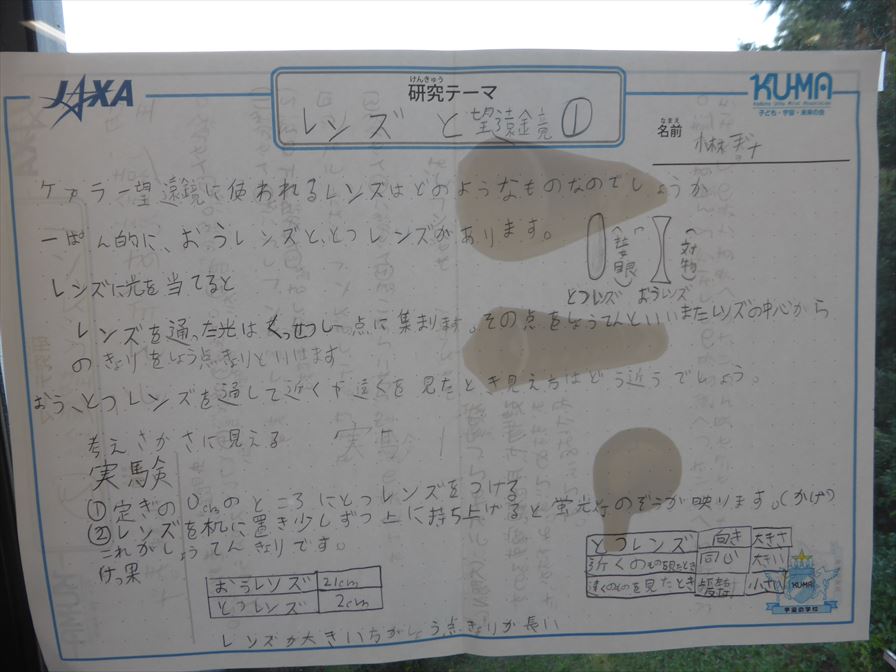 JAXA
けんきゅう
研究テーマ
レンズ と望遠鏡①
KU-MA
子ども・宇宙・未来の会
なまえ
名前
小林
ケプラー望遠鏡に使われるレンズはどのようなものなのでしょうか
一ぱん的に、おうレンズと、とつレンズがあります。
(接眼)
(対物)
とつレンズ おうレンズ
レンズに光を当てると
レンズを通った光はくっせつし一点に集まります。その点をしょうてんといいまたレンズの中心から
のきょりをしょう点きょりといいます
おう、とつレンズを通して近くや遠くを見たとき見え方はどう近うでしょう。
考えさかさに見える 実験!
実験
①定ぎの0cmのところにとつレンズをつける
②レンズを机に置き少しずつ上に持ち上げると蛍光灯のぞうが映ります。(かげ)
これがしょうてんきょりです。
けっ果
おうレンズ 21cm
とつレンズ 2cm
とつレンズ 向き 大きさ
近くのもの見たとき 同じ 大きい
遠くのものを見たとき 小さい
KU-MA
宇宙の学校
レンズが大きい方がしょう点きょりが長い